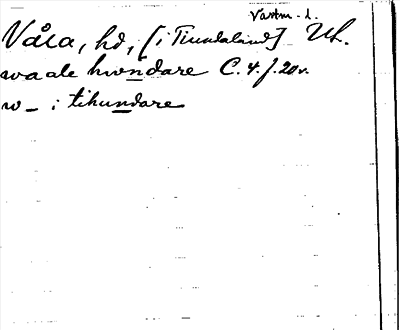 Västm. l.
Våla, hd, [i Tiundaland] Ul.
waale hwndare C. 4. f. 20v.
w_ i tihundare